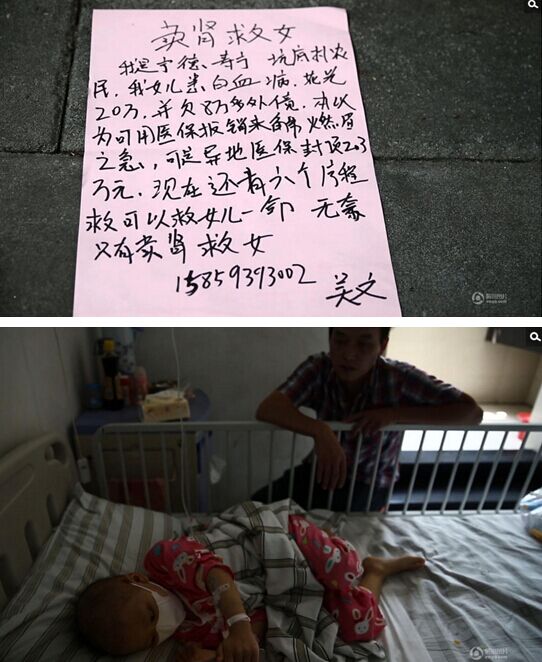 卖肾救女
我是宁德、寿宁 坑底村农
民，我女儿患白血病，花光
20万，并欠8万多外债，本以
为可用医保报销来燃眉
之急，可是异地医保封顶
万元，现在还有六个疗程
就可以救女儿一命 无奈
只有卖肾救女
15859393002
吴文